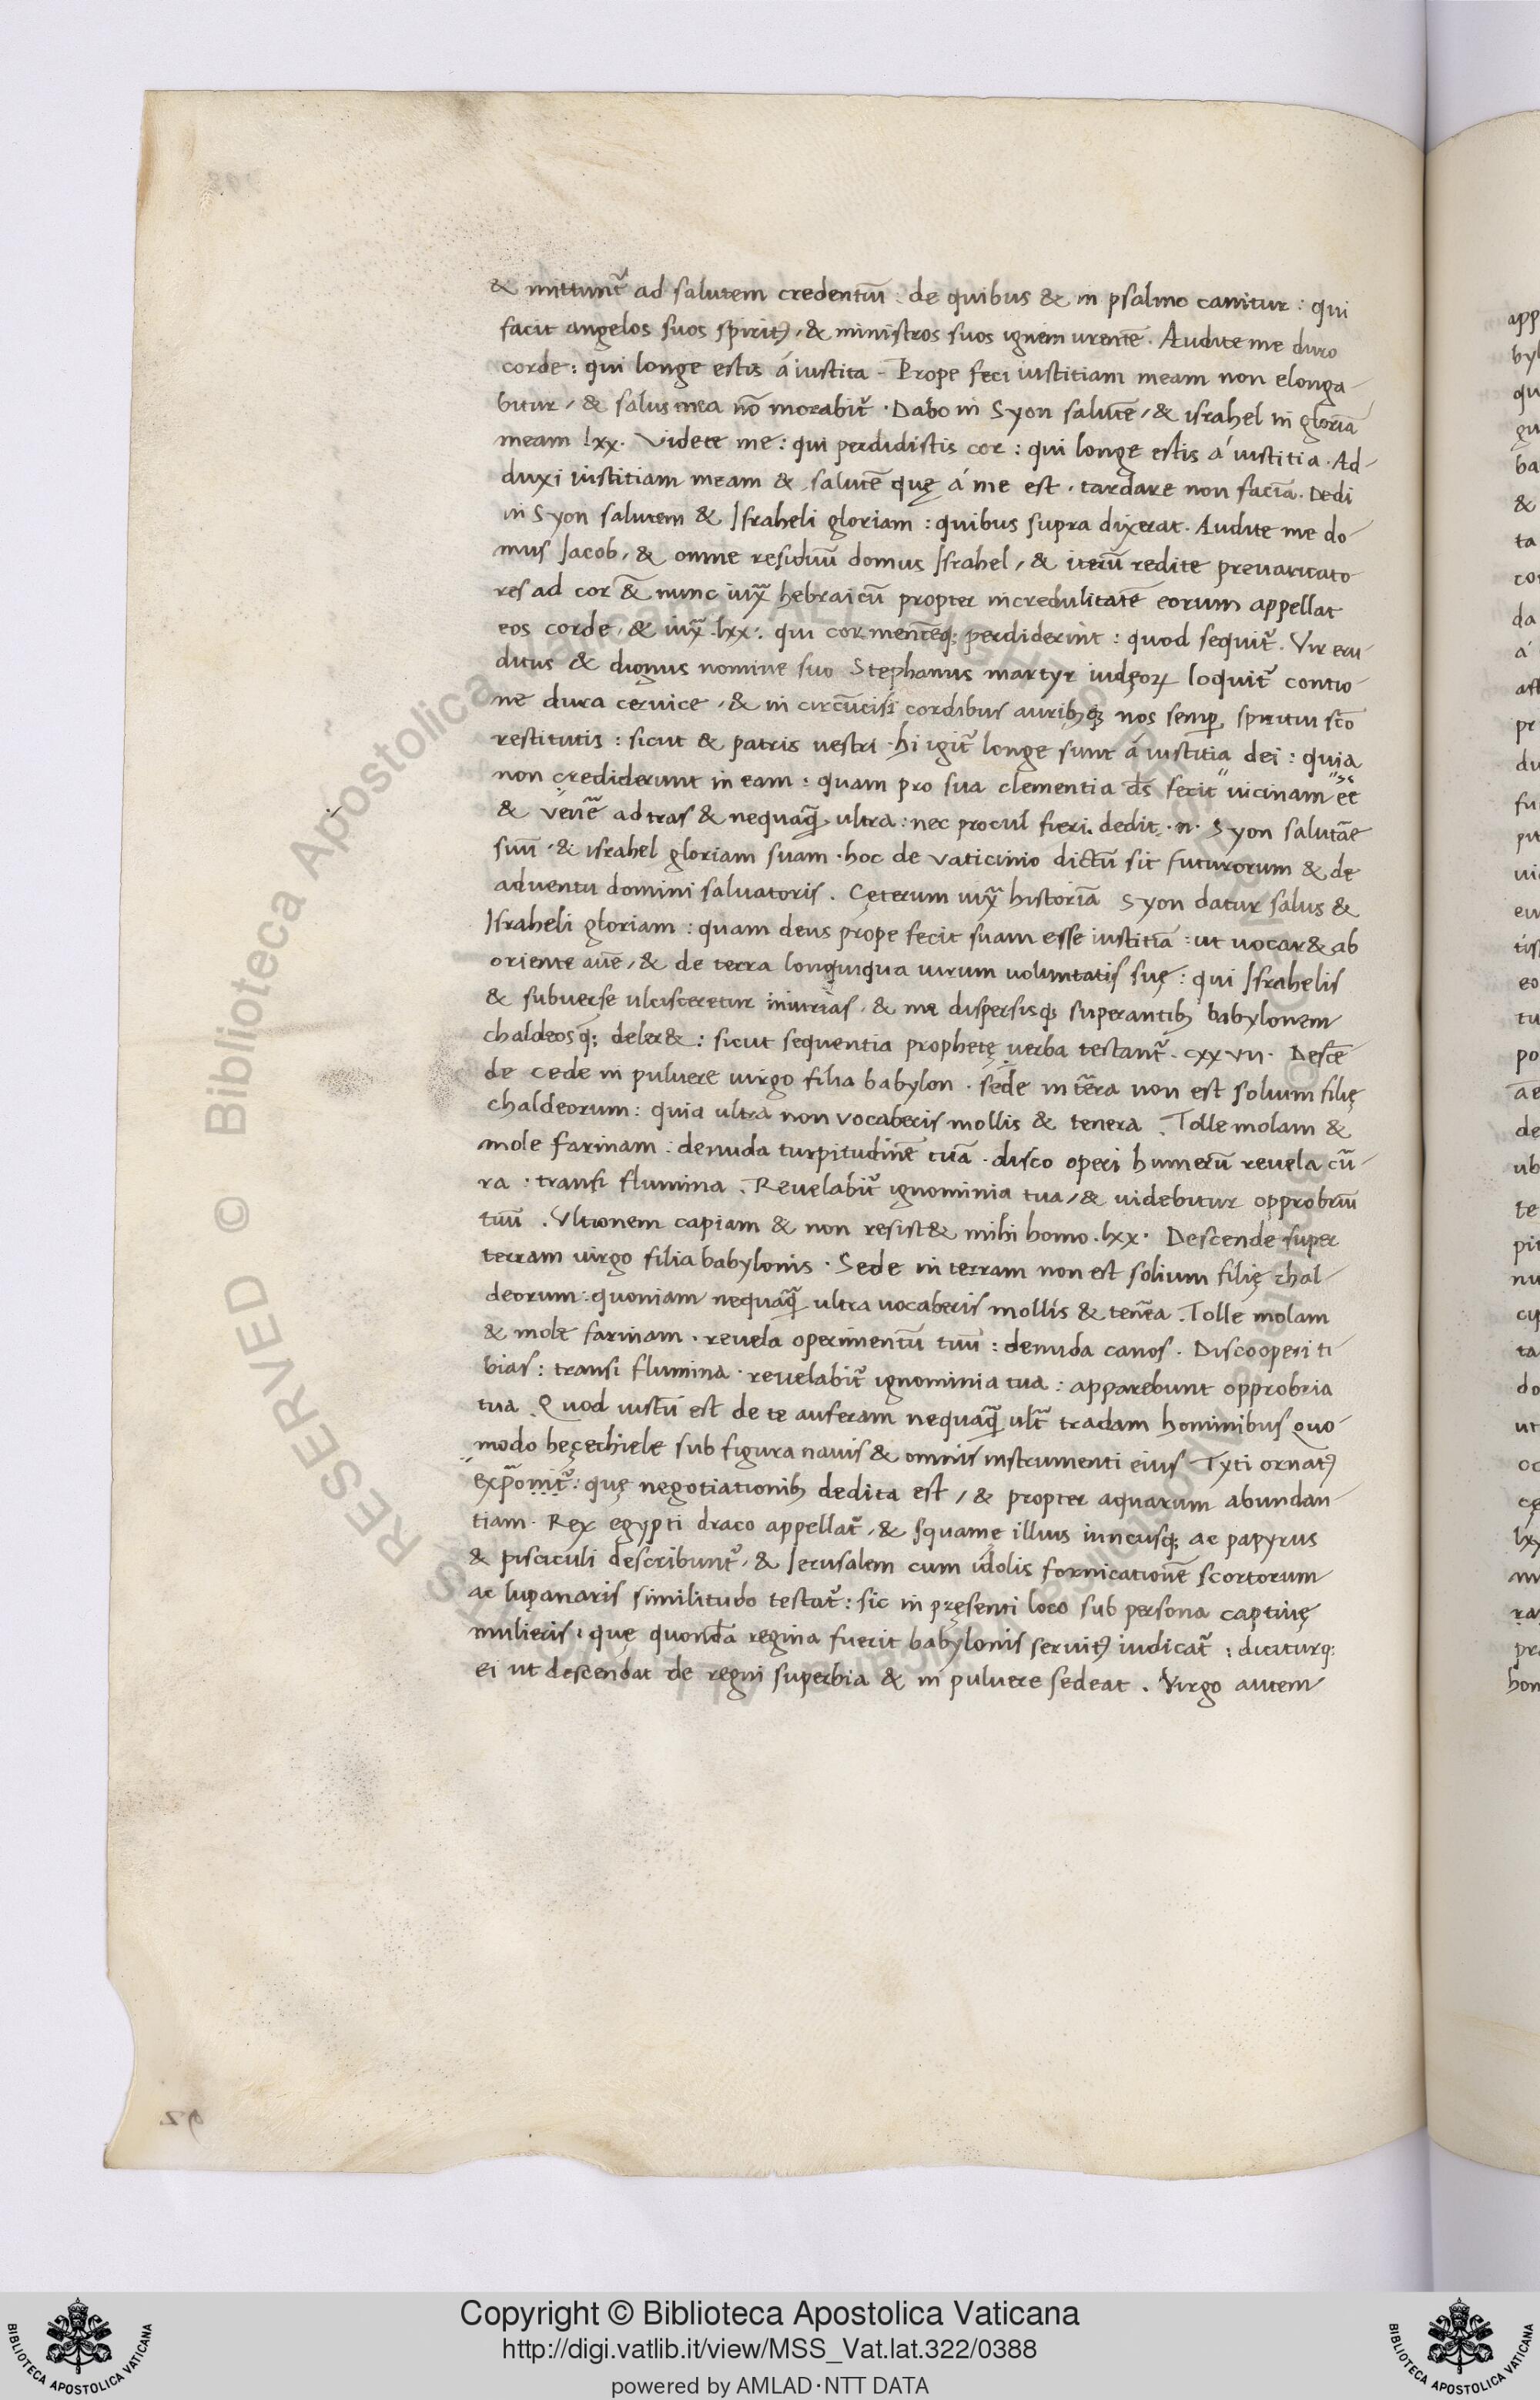 & mittunt᷑ ad salutem credentiū : de quibus & in psalmo canitur : qui
facit angelos suos spiritꝰ, & ministros suos ignem urentē. Audite me duro
corde : qui longe estis á iustita - Prope feci iustitiam meam non elonga-
bitur, & salus mea nō morabit᷑ . Dabo in Syon salutē, & israhel in gloriā
meam lxx. Videte me : qui perdidistis cor : qui longe estis á iustitia . Ad-
duxi iustitiam meam & salutē quę á me est . tardare non faciā . Dedi
in Syon salutem & Israheli gloriam : quibus supra dixerat . Audite me do-
mus Jacob, & omne residuū domus Israhel, & iterū redite prevaricato-
res ad cor & nunc iuxͣ hebraicū propter incredulitatē eorum appellat
eos corde, & iuxͣ .lxx. qui cor mentēq; perdiderint : quod sequit᷑ . Vir eru-
ditus & dignus nomine suo Stephanus martyr iudęoꝝ loquit᷑ contio-
ne dura cervice, & in circūcisis cordibus auribꝫq; vos semꝑ spiritui scō
restitutis : sicut & patris vestri . hi igit᷑ longe sunt á iustitia dei : quia
non crediderunt in eam : quam pro sua clementia ds̄ fecit uicinam eē
& ad tras & nequaꝗ̄ ultra : nec procul fieri . dedit .n. Syon salutāe
suū . & israhel gloriam suam . hoc de vaticinio dictū sit futurorum & de
adventu domini salvatoris . Cęterum iuxͣ historiā Syon datur salus &
Israheli gloriam : quam deus prope fecit suam esse iustitiā : ut vocar& ab
oriente avē, & de terra longuiqua virum voluntatis suę : qui Israhelis
& subverse ulcisceretur iniurias, & me dispersisq; superantibꝫ babylonem
chaldeosq̄; deler& : sicut sequentia prophetę verba testant᷑ . cxxvii . Descē-
de cede in pulvere virgo filia babylon . sede in tēra non est solium filię
chaldeorum : quia ultra non vocaberis mollis & tenera . Tolle molam &
mole farinam : denuda turpitudinē tuā . disco operi humerū revela cū-
ra . transi flumina . Revelabit᷑ ignominia tua, & videbitur opprobriū
tuū . Ultionem capiam & non resist& mihi homo . lxx . Descende super
terram virgo filia babylonis . Sede in terram non est solium filię chal-
deorum : quoniam nequaꝗ̄ ultra vocaberis mollis & tenēa . Tolle molam
& mole farinam . revela operimentū tuū : denuda canos . Discooperi ti-
bias : transi flumina . revelabit᷑ ignominia tua : apparebunt opprobria
tua . Quod iustū est de te auferam nequaꝗ̄ ultͣ tradam hominibus quo-
modo heçechiele sub figura navis & omnis instrumenti eius Tyti ornatꝰ
exponit᷑ : quę negotiationibꝫ dedita est, & propter aquarum abundan-
tiam . Rex egypti draco appellat᷑, & squamę illius iuncusq; ac papyrus
& pisciculi describunt᷑, & Jerusalem cum idolis fornicationē scortorum
ac lupanaris similitudo testat᷑ : sic in pręsenti loco sub persona captivę
mulieris : quę quondā regina fuerit babylonis servitꝰ iudicat᷑ : diciturq;
ei ut descendat de regni superbia & in pulvere sedeat . Virgo autem
Copyright © Biblioteca Apostolica Vaticana
http://digi.vatlib.it/view/MSS_Vat.lat.322/0388
powered by AMLAD·NTT DATA